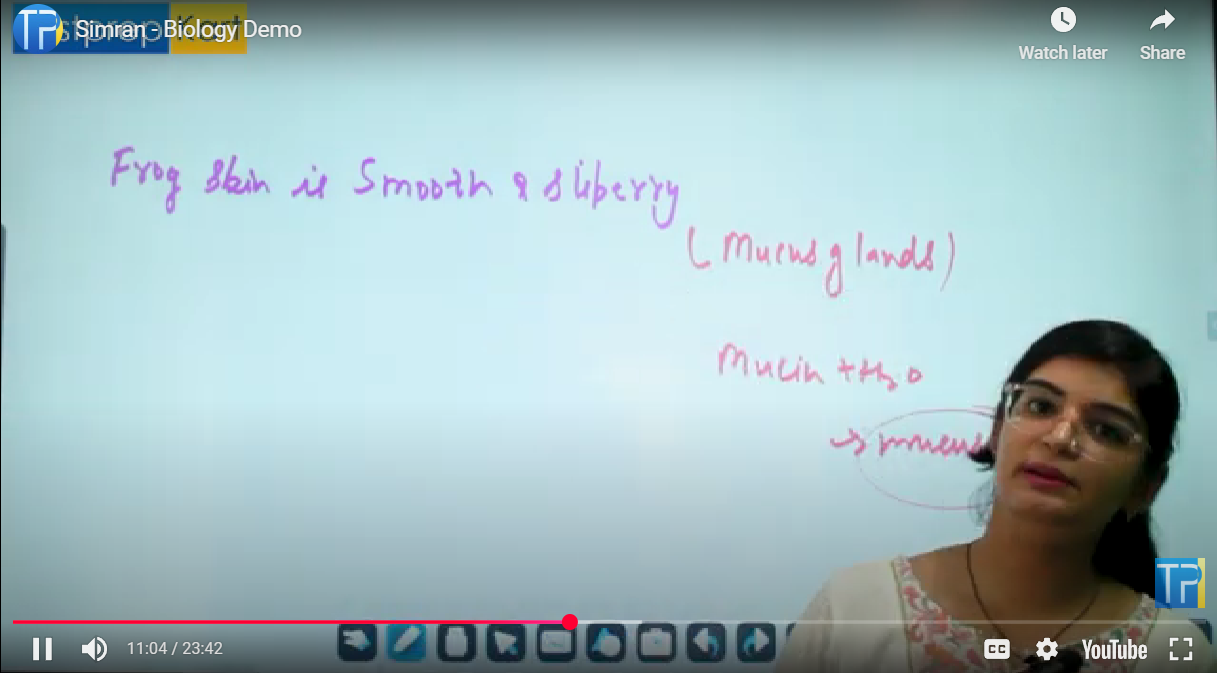 Simran - Biology Demo
Watch later
Share
Frog skin is Smooth & sliberry
(Mucus glands)
Mucin + H2O
→ mucus
TP
11:04 / 23:42
CC
YouTube